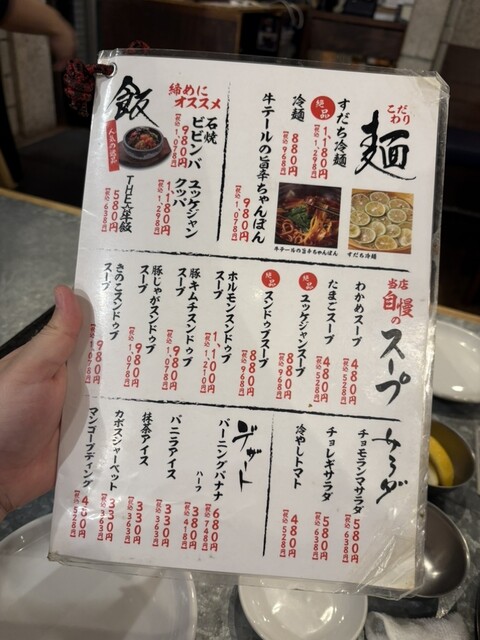 こだわり
麺
絶品
すだち冷麺
1,180円
(税込1,298円)
冷麺
880円
(税込968円)
牛テールの旨辛ちゃんぽん
980円
(税込1,078円)
牛テールの旨辛ちゃんぽん
すだち冷麺
飯
締めに
オススメ
人気の逸品
石焼
ビビンバ
980円
(税込1,078円)
ユッケジャン
クッパ
1,180円
(税込1,298円)
580円
当店
自慢
の
スープ
わかめスープ
480円
(税込528円)
たまごスープ
480円
(税込528円)
絶品
ユッケジャンスープ
880円
(税込968円)
絶品
スンドゥブスープ
880円
(税込968円)
ホルモンスンドゥブ
スープ
1,100円
(税込1,210円)
豚キムチスンドゥブ
スープ
980円
(税込1,078円)
豚じゃがスンドゥブ
スープ
980円
(税込1,078円)
きのこスンドゥブ
スープ
980円
(税込1,078円)
サラダ
チョモランマサラダ
580円
(税込638円)
チョレギサラダ
580円
(税込638円)
冷やしトマト
480円
(税込528円)
デザート
バーニングバナナ
680円
(税込748円)
ハーフ
380円
(税込418円)
バニラアイス
330円
(税込363円)
抹茶アイス
330円
(税込363円)
カボスシャーベット
330円
(税込363円)
マンゴープディング
480円
(税込528円)